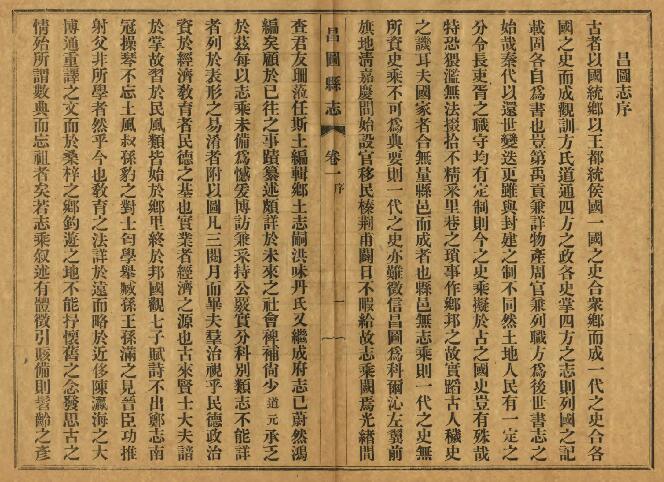 昌圖志序
古者以國統鄉以王都統侯國一國之史合衆鄉而成一代之史合各
國之史而成觀訓方氏道通四方之政各史掌四方之志則列國之記
載固各自爲書也豈第禹貢兼詳物產周官兼列職方爲後世書志之
始哉秦代以還世變迭更雖與封建之制不同然土地人民有一定之
分令長吏胥之職守均有定制則今之史乘擬於古之國史豈有殊哉
特恐猥濫無法掇拾不精采里巷之瑣事作鄉邦之故實蹈古人穢史
之譏耳夫國家者合無量縣邑而成者也縣邑無志乘則一代之史無
所資史乘不可爲典要則一代之史亦難徵信昌圖爲科爾沁左翼前
旗地清嘉慶間始設官移民榛荆甫闢日不暇給故志乘闕焉光緒間
昌圖縣志 卷一 序 一
查君友珊蒞任斯土編輯鄉土志嗣洪味丹氏又繼成府志已蔚然鴻
編矣顧於已往之事蹟纂述頗詳於未來之社會裨補尙少道元承乏
於茲每以志乘未備爲憾爰博訪兼采持公覈實分科別類志不能詳
者列於表形之易淆者附以圖凡三閱月而畢夫羣治視乎民德政治
資於經濟敎育者民德之基也實業者經濟之源也古來賢士大夫諳
於掌故習於民風類皆始於鄉里終於邦國觀七子賦詩不出鄭志南
冠操琴不忘土風叔孫豹之對士匄學舉臧孫王孫滿之見晉臣功推
射父非所學者然乎今也敎育之法詳於遠而略於近侈陳瀛海之大
博通重譯之文而於桑梓之鄉釣遊之地不能抒懷舊之念發思古之
情殆所謂數典而忘祖者矣若志乘叙述有體徵引賅備則髫齡之彥